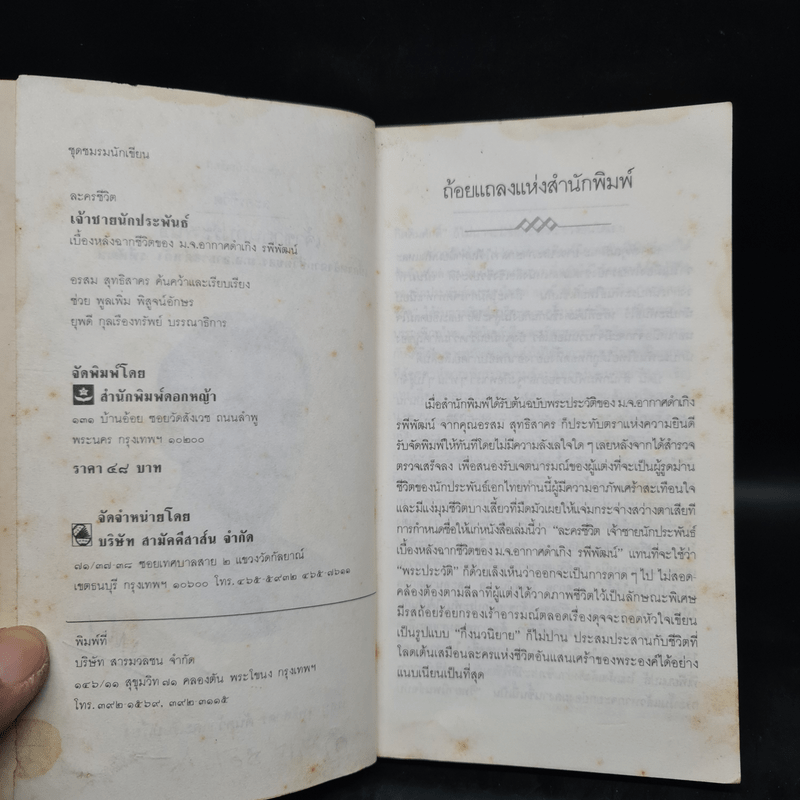 ชุดชมรมนักเขียน
ละครชีวิต
เจ้าชายนักประพันธ์
เบื้องหลังฉากชีวิตของ ม.จ.อากาศดำเกิง รพีพัฒน์
อรสม สุทธิสาคร ค้นคว้าและเรียบเรียง
ช่วย พูลเพิ่ม พิสูจน์อักษร
ยุพดี กุลเรืองทรัพย์ บรรณาธิการ
จัดพิมพ์โดย
สำนักพิมพ์ดอกหญ้า
๑๓๑ บ้านอ้อย ซอยวัดสังเวช ถนนลำพู
พระนคร กรุงเทพฯ ๑๐๒๐๐
ราคา ๔๘ บาท
จัดจำหน่ายโดย
บริษัท สามัคคีสาส์น จำกัด
๗๑/๓๗-๓๘ ซอยเทศบาลสาย ๒ แขวงวัดกัลยาณ์
เขตธนบุรี กรุงเทพฯ ๑๐๖๐๐ โทร.๔๖๕-๕๙๓๒ ๔๖๕-๗๖๑๑
พิมพ์ที่
บริษัท สารมวลชน จำกัด
๑๔๖/๑๑ สุขุมวิท ๗๑ คลองตัน พระโขนง กรุงเทพฯ
โทร. ๓๙๒-๑๕๖๙, ๓๙๒-๓๑๑๕
ถ้อยแถลงแห่งสำนักพิมพ์
เมื่อสำนักพิมพ์ได้รับต้นฉบับพระประวัติของ ม.จ.อากาศดำเกิง
รพีพัฒน์ จากคุณอรสม สุทธิสาคร ก็ประทับตราแห่งความยินดี
รับจัดพิมพ์ให้ทันทีโดยไม่มีความลังเลใจใด ๆ เลยหลังจากได้สำรวจ
ตรวจเสร็จลง เพื่อสนองรับเจตนารมณ์ของผู้แต่งที่จะเป็นผู้รูดม่าน
ชีวิตของนักประพันธ์เอกไทยท่านนี้ผู้มีความอาภัพเศร้าสะเทือนใจ
และมีแง่มุมชีวิตบางเสี้ยวที่มืดมัวเผยให้แจ่มกระจ่างสว่างตาเสียที
การกำหนดชื่อให้แก่หนังสือเล่มนี้ว่า “ละครชีวิต เจ้าชายนักประพันธ์
เบื้องหลังฉากชีวิตของ ม.จ.อากาศดำเกิง รพีพัฒน์” แทนที่จะใช้ว่า
“พระประวัติ” ก็ด้วยเล็งเห็นว่าออกจะเป็นการดาด ๆ ไป ไม่สอด-
คล้องต้องตามลีลาที่ผู้แต่งได้วาดภาพชีวิตไว้เป็นลักษณะพิเศษ
มีรสถ้อยร้อยกรองเร้าอารมณ์ตลอดเรื่องดุจจะถอดหัวใจเขียน
เป็นรูปแบบ “กึ่งนวนิยาย” ก็ไม่ปาน ประสมประสานกับชีวิตที่
โลดเต้นเสมือนละครแห่งชีวิตอันแสนเศร้าของพระองค์ได้อย่าง
แนบเนียนเป็นที่สุด